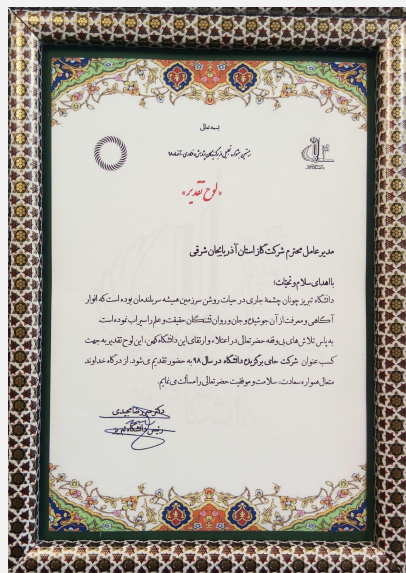 بسمه تعالی
«لوح تقدیر»
مدیر عامل محترم شرکت گاز استان آذربایجان شرقی
با اهدای سلام و تحیّات؛
دانشگاه تبریز چونان چشمهٔ جاری در حیات روشن سرزمین همیشه سربلندمان بوده است که انوار
آگاهی و معرفت از آن جوشیده و جان و روان تشنگان حقیقت و علم را سیراب نموده است.
به پاس تلاش‌های بی‌وقفه حضرتعالی در اعتلاء و ارتقای این دانشگاه کهن، این لوح تقدیر به جهت
کسب عنوان شرکت حامی برگزیدهٔ دانشگاه در سال ۹۸ به حضور تقدیم می‌شود. از درگاه خداوند
متعال همواره سعادت، سلامت و موفقیت حضرتعالی را مسألت می‌نمایم.
مجیدی
رئیس دانشگاه تبریز